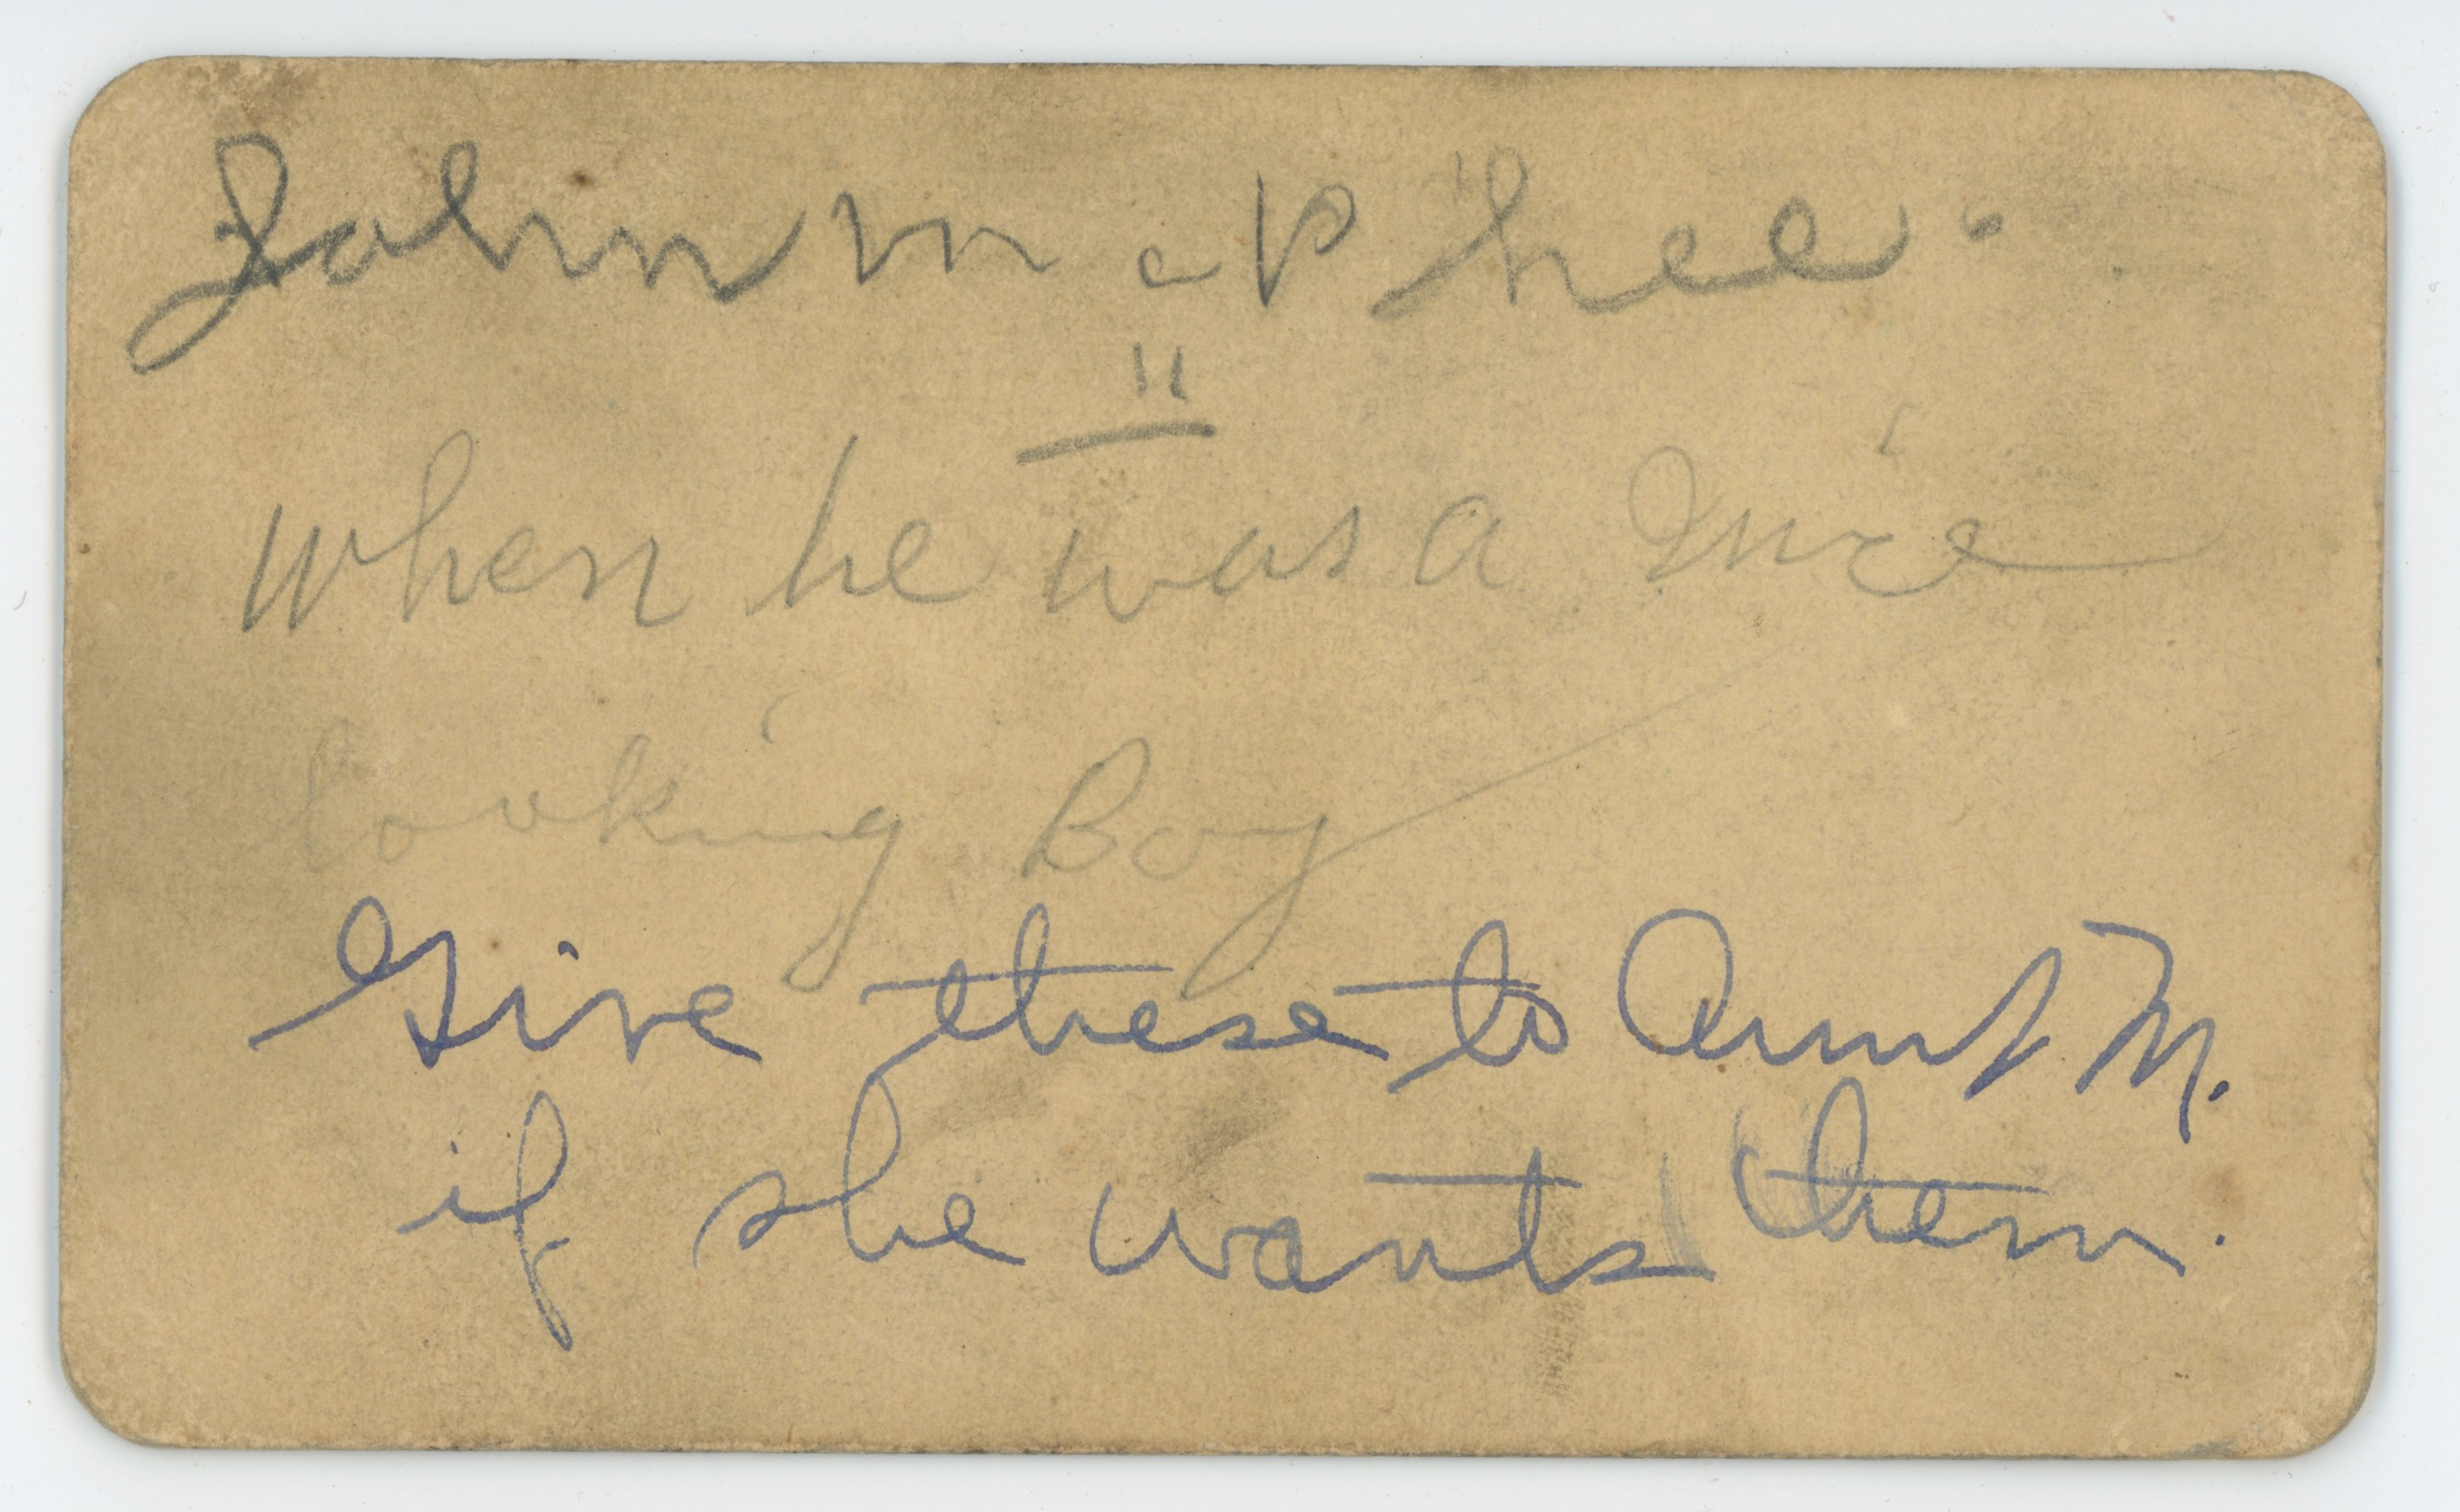 John McPhee.
"
when he was a nice
looking Boy
Give these to Aunt M.
if she wants them.